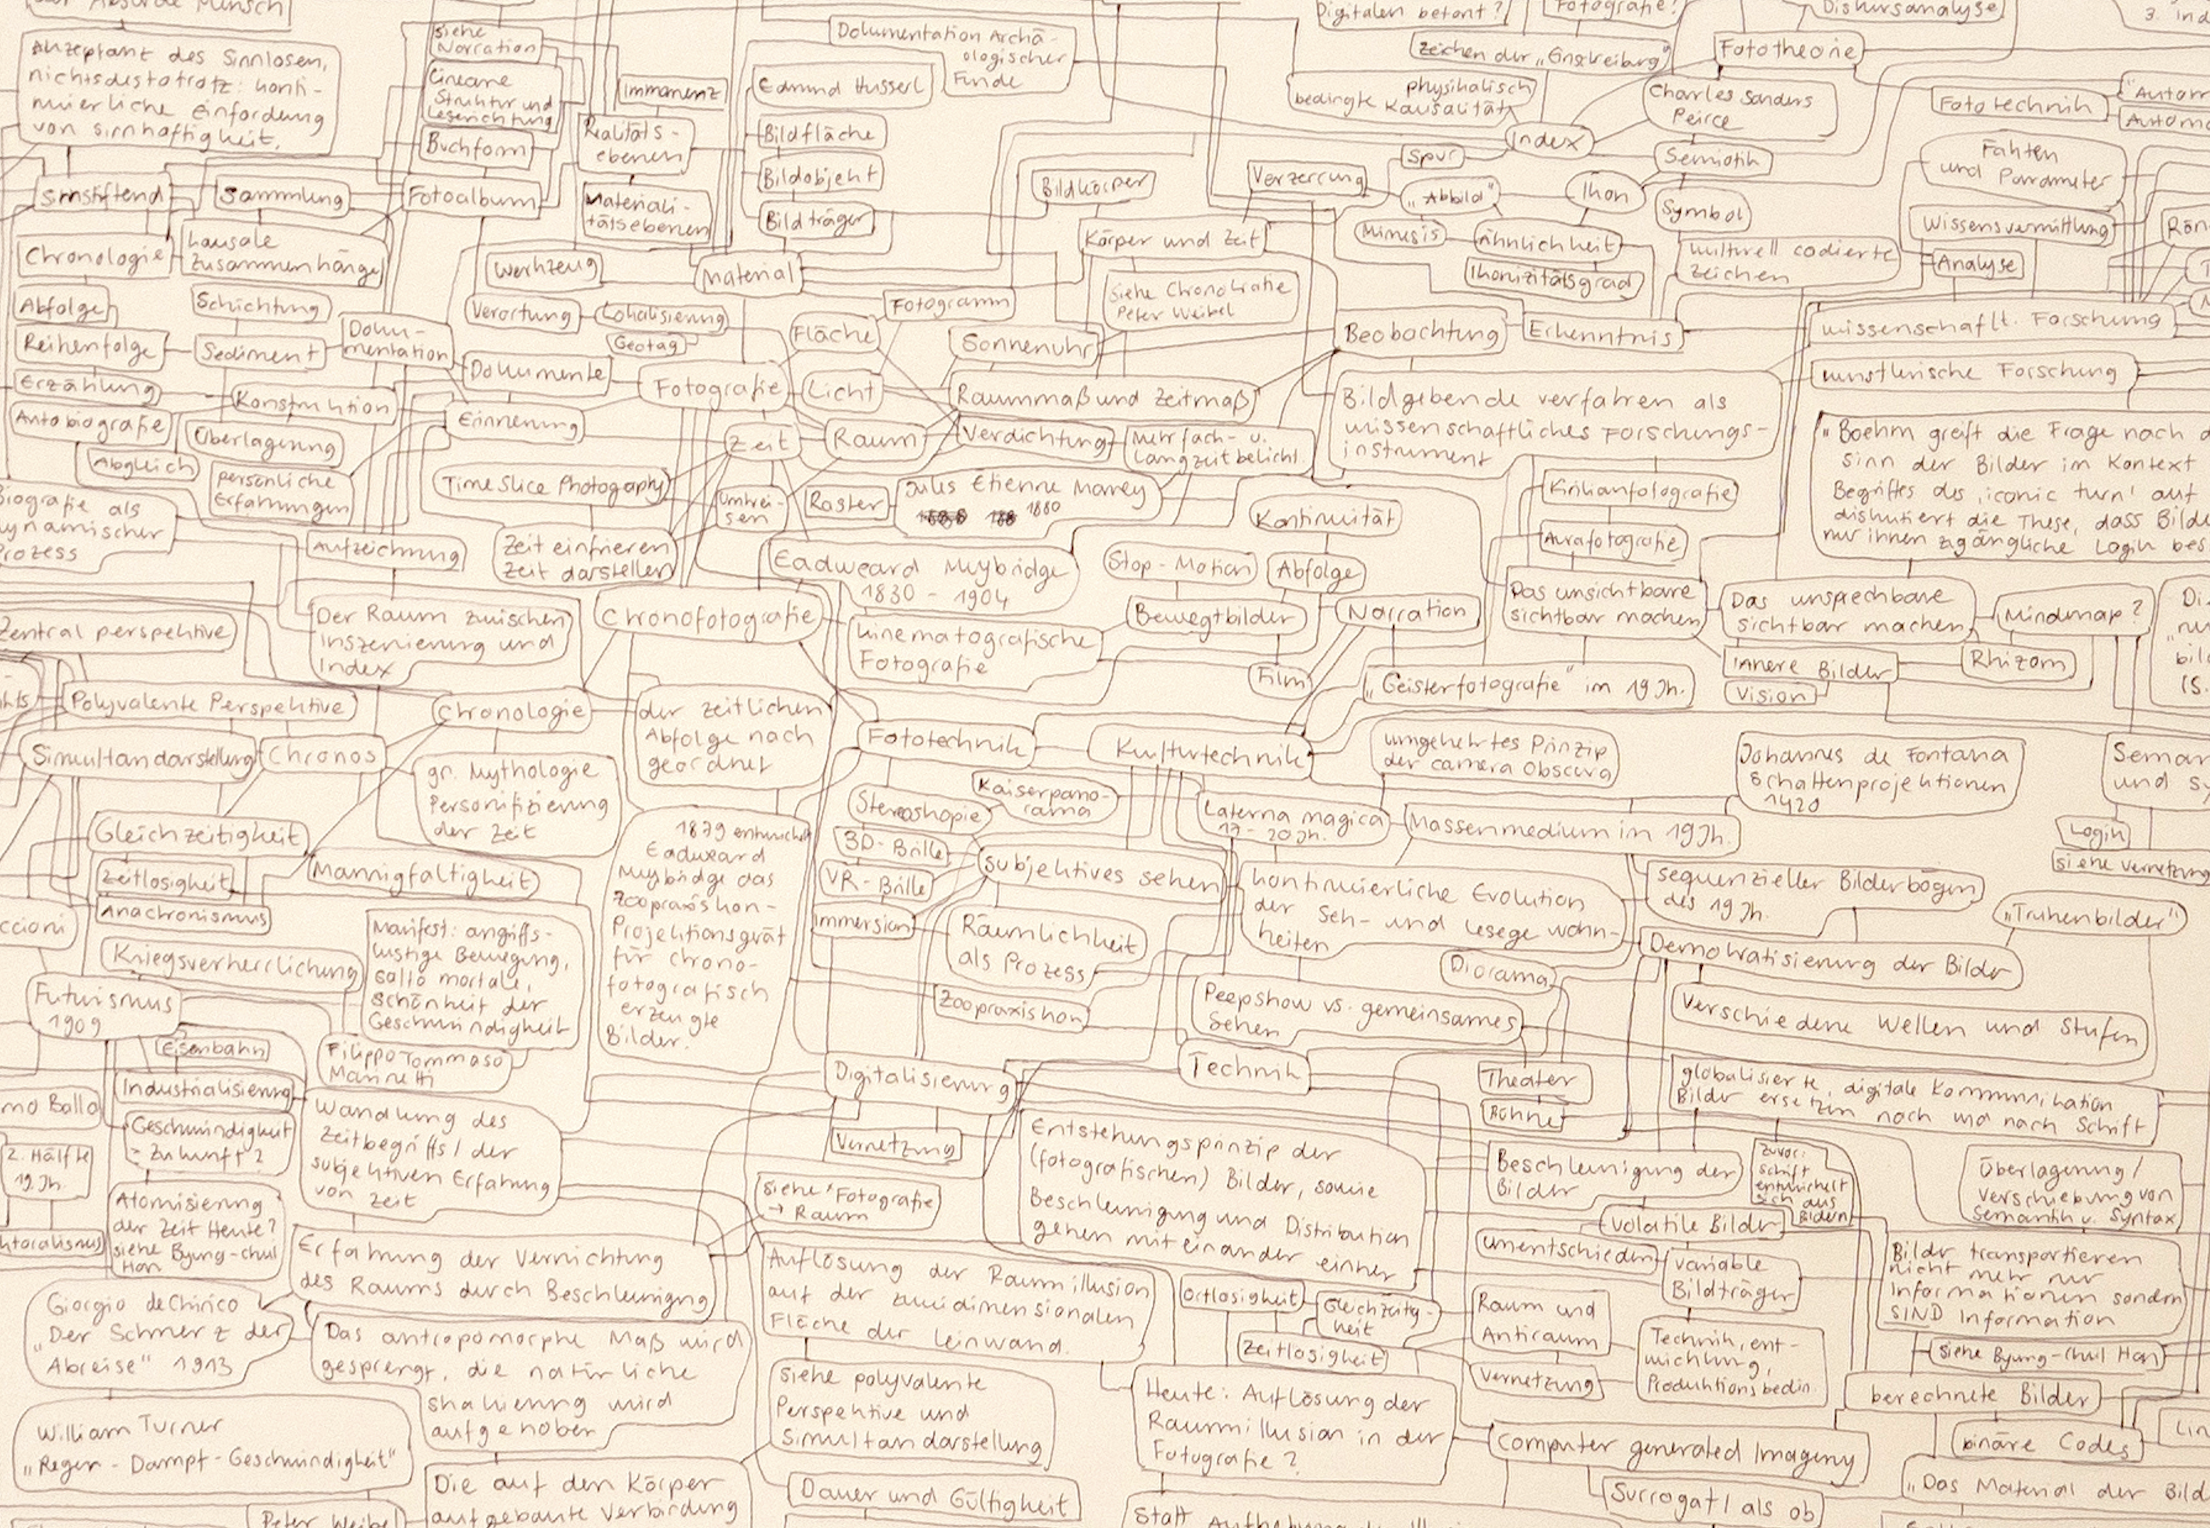 der Absurde Mensch
Akzeptanz des Sinnlosen,
nichtsdestotrotz: konti-
nuierliche Einforderung
von Sinnhaftigkeit.
siehe
Narration
Lineare
Struktur und
Leserichtung
Buchform
Immanenz
Realitäts-
ebenen
Materiali-
tätsebenen
Dokumentation Archä-
ologischer
Funde
Edmund Husserl
Bildfläche
Bildobjekt
Bildträger
Bildkörper
Digitalen betont?
Fotografie?
Diskursanalyse
3. ind
Zeichen der „Einschreibung"
Fototheorie
physikalisch
bedingte Kausalität
Charles Sanders
Peirce
Fototechnik
"Autom
Autom
Index
Spur
Semiotik
Fakten
und Parameter
Verzerrung
„Abbild"
Ikon
Symbol
Wissensvermittlung
Mimesis
Ähnlichkeit
Ikonizitätsgrad
kulturell codierte
Zeichen
Analyse
sinnstiftend
Sammlung
Fotoalbum
Chronologie
kausale
Zusammenhänge
Werkzeug
Material
Körper und Zeit
siehe Chronokratie
Peter Weibel
Abfolge
Schichtung
Verortung
Lokalisierung
Geotag
Fotogramm
Fläche
Sonnenuhr
Beobachtung
Erkenntnis
wissenschaftl. Forschung
künstlerische Forschung
Reihenfolge
Sediment
Doku-
mentation
Dokumente
Fotografie
Licht
Raummaß und Zeitmaß
Erzählung
Konstruktion
Erinnerung
Zeit
Raum
Verdichtung
Mehrfach- u.
Langzeitbelicht.
Bildgebende verfahren als
wissenschaftliches Forschungs-
instrument
Autobiografie
Überlagerung
Abgleich
persönliche
Erfahrungen
Time Slice Photography
Umkrei-
sen
Raster
Jules Étienne Marey
1880
Kontinuität
Kirlianfotografie
Aurafotografie
"Boehm greift die Frage nach d
Sinn der Bilder im Kontext
Begriffes des ‚iconic turn' auf
diskutiert die These, dass Bilde
nur ihnen zugängliche Login bes
Biografie als
dynamischer
Prozess
Aufzeichnung
Zeit einfrieren
Zeit darstellen
Eadweard Muybridge
1830 - 1904
Stop-Motion
Abfolge
Der Raum zwischen
Inszenierung und
Index
Chronofotografie
kinematografische
Fotografie
Bewegtbilder
Narration
Film
Das unsichtbare
sichtbar machen
Das unsprechbare
sichtbar machen
Mindmap?
innere Bilder
Rhizom
Vision
„Geisterfotografie" im 19 Jh.
Zentralperspektive
Polyvalente Perspektive
Chronologie
der zeitlichen
Abfolge nach
geordnet
Fototechnik
Kulturtechnik
umgekehrtes Prinzip
der camera obscura
Johannes de Fontana
Schattenprojektionen
1420
Seman
und Sy
Simultandarstellung
Chronos
gr. Mythologie
Personifizierung
der Zeit
Stereoskopie
Kaiserpano-
rama
Laterna magica
17 - 20 Jh.
Massenmedium im 19 Jh.
Login
siehe vernetzung
Gleichzeitigkeit
Zeitlosigkeit
Mannigfaltigkeit
Anachronismus
1879 entwickelt
Eadweard
Muybridge das
Zoopraxiskon-
Projektionsgerät
für chrono-
fotografisch
erzeugte
Bilder.
3D-Brille
VR-Brille
Immersion
subjektives sehen
Räumlichkeit
als Prozess
Zoopraxiskon
kontinuierliche Evolution
der Seh- und Lesegewohn-
heiten
sequenzieller Bilderbögen
des 19 Jh.
„Truhenbilder"
Demokratisierung der Bilder
Diorama
Peepshow vs. gemeinsames
Sehen
Verschiedene Wellen und Stufen
ccioni
Kriegsverherrlichung
Manifest: angriffs-
lustige Bewegung,
salto mortale,
Schönheit der
Geschwindigkeit
Futurismus
1909
Filippo Tommaso
Marinetti
Eisenbahn
Industrialisierung
Digitalisierung
Technik
Theater
Bühne
globalisierte, digitale Kommunikation
Bilder ersetzen nach und nach Schrift
Geschwindigkeit
= Zukunft?
Wandlung des
Zeitbegriffs / der
subjektiven Erfahrung
von Zeit
Vernetzung
Entstehungsprinzip der
(fotografischen) Bilder, sowie
Beschleunigung und Distribution
gehen miteinander einher
Beschleunigung der
Bilder
zuvor:
Schrift
entwickelt
sich aus
Bildern
Überlagerung /
Verschiebung von
Semantik u. Syntax
mo Balla
2. Hälfte
19. Jh.
Atomisierung
der Zeit Heute?
siehe Byung-chul
Han
siehe "Fotografie
→ Raum
volatile Bilder
unentschieden
variable
Bildträger
Bilder transportieren
nicht mehr nur
Informationen sondern
SIND Information
siehe Byung-chul Han
Erfahrung der Vernichtung
des Raums durch Beschleunigung
Auflösung der Raumillusion
auf der zweidimensionalen
Fläche der Leinwand.
Ortlosigkeit
Gleichzeitig-
keit
Zeitlosigkeit
Raum und
Antiraum
Vernetzung
Technik, ent-
wicklung,
Produktionsbedin.
Giorgio de Chirico
„Der Schmerz der
Abreise" 1913
Das antropomorphe Maß wird
gesprengt, die natürliche
skalierung wird
aufgehoben
siehe polyvalente
Perspektive und
Simultandarstellung
Heute: Auflösung der
Raumillusion in der
Fotografie?
berechnete Bilder
binäre Codes
Lin
William Turner
„Regen - Dampf - Geschwindigkeit"
Computer generated Imagery
Die auf den Körper
aufgebaute Verbindung
Dauer und Gültigkeit
Surrogat / als ob
„Das Material der Bild
Peter Weibel
Statt